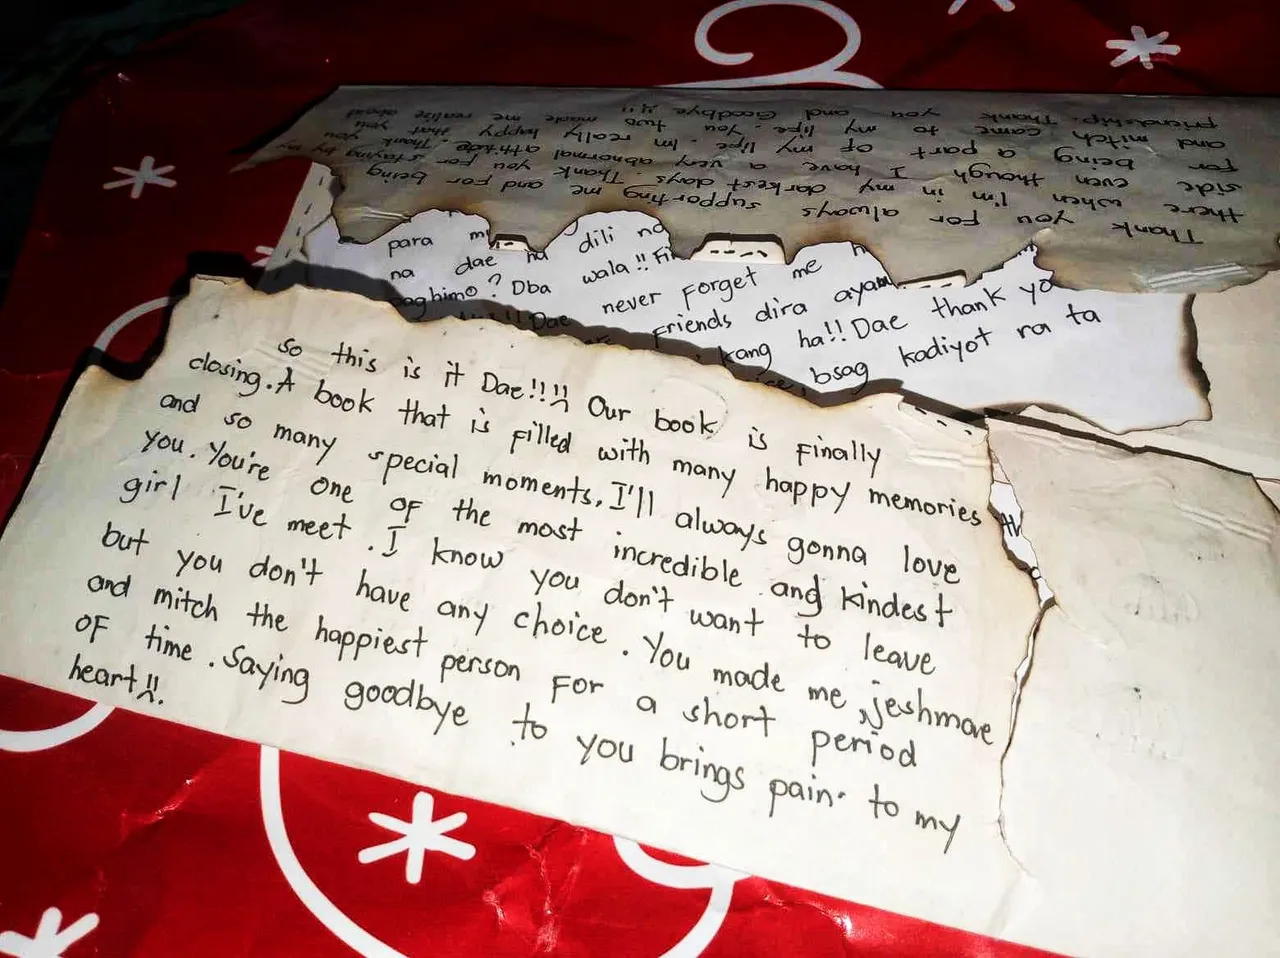 Thank you for always supporting me and for being
there when I'm in my darkest days. Thank you for staying by my
side even though I have a very abnormal attitude. Thank you
for being a part of my life. Im really happy that you
and mitch came to my life. You two made me realize about
friendship. Thank you and Goodbye !!
para dili
na dae na
paghimo? Dba wala!! Fi
Dae never forget me
Friends dira ayaw
kang ha!! Dae thank yo
bsag kadiyot ra ta
so this is it Dae!!!! Our book is finally
closing. A book that is filled with many happy memories
and so many special moments, I'll always gonna love
you. You're one of the most incredible and kindest
girl I've meet. I know you don't want to leave
but you don't have any choice. You made me, jeshmare
and mitch the happiest person for a short period
of time. Saying goodbye to you brings pain to my
heart!!.